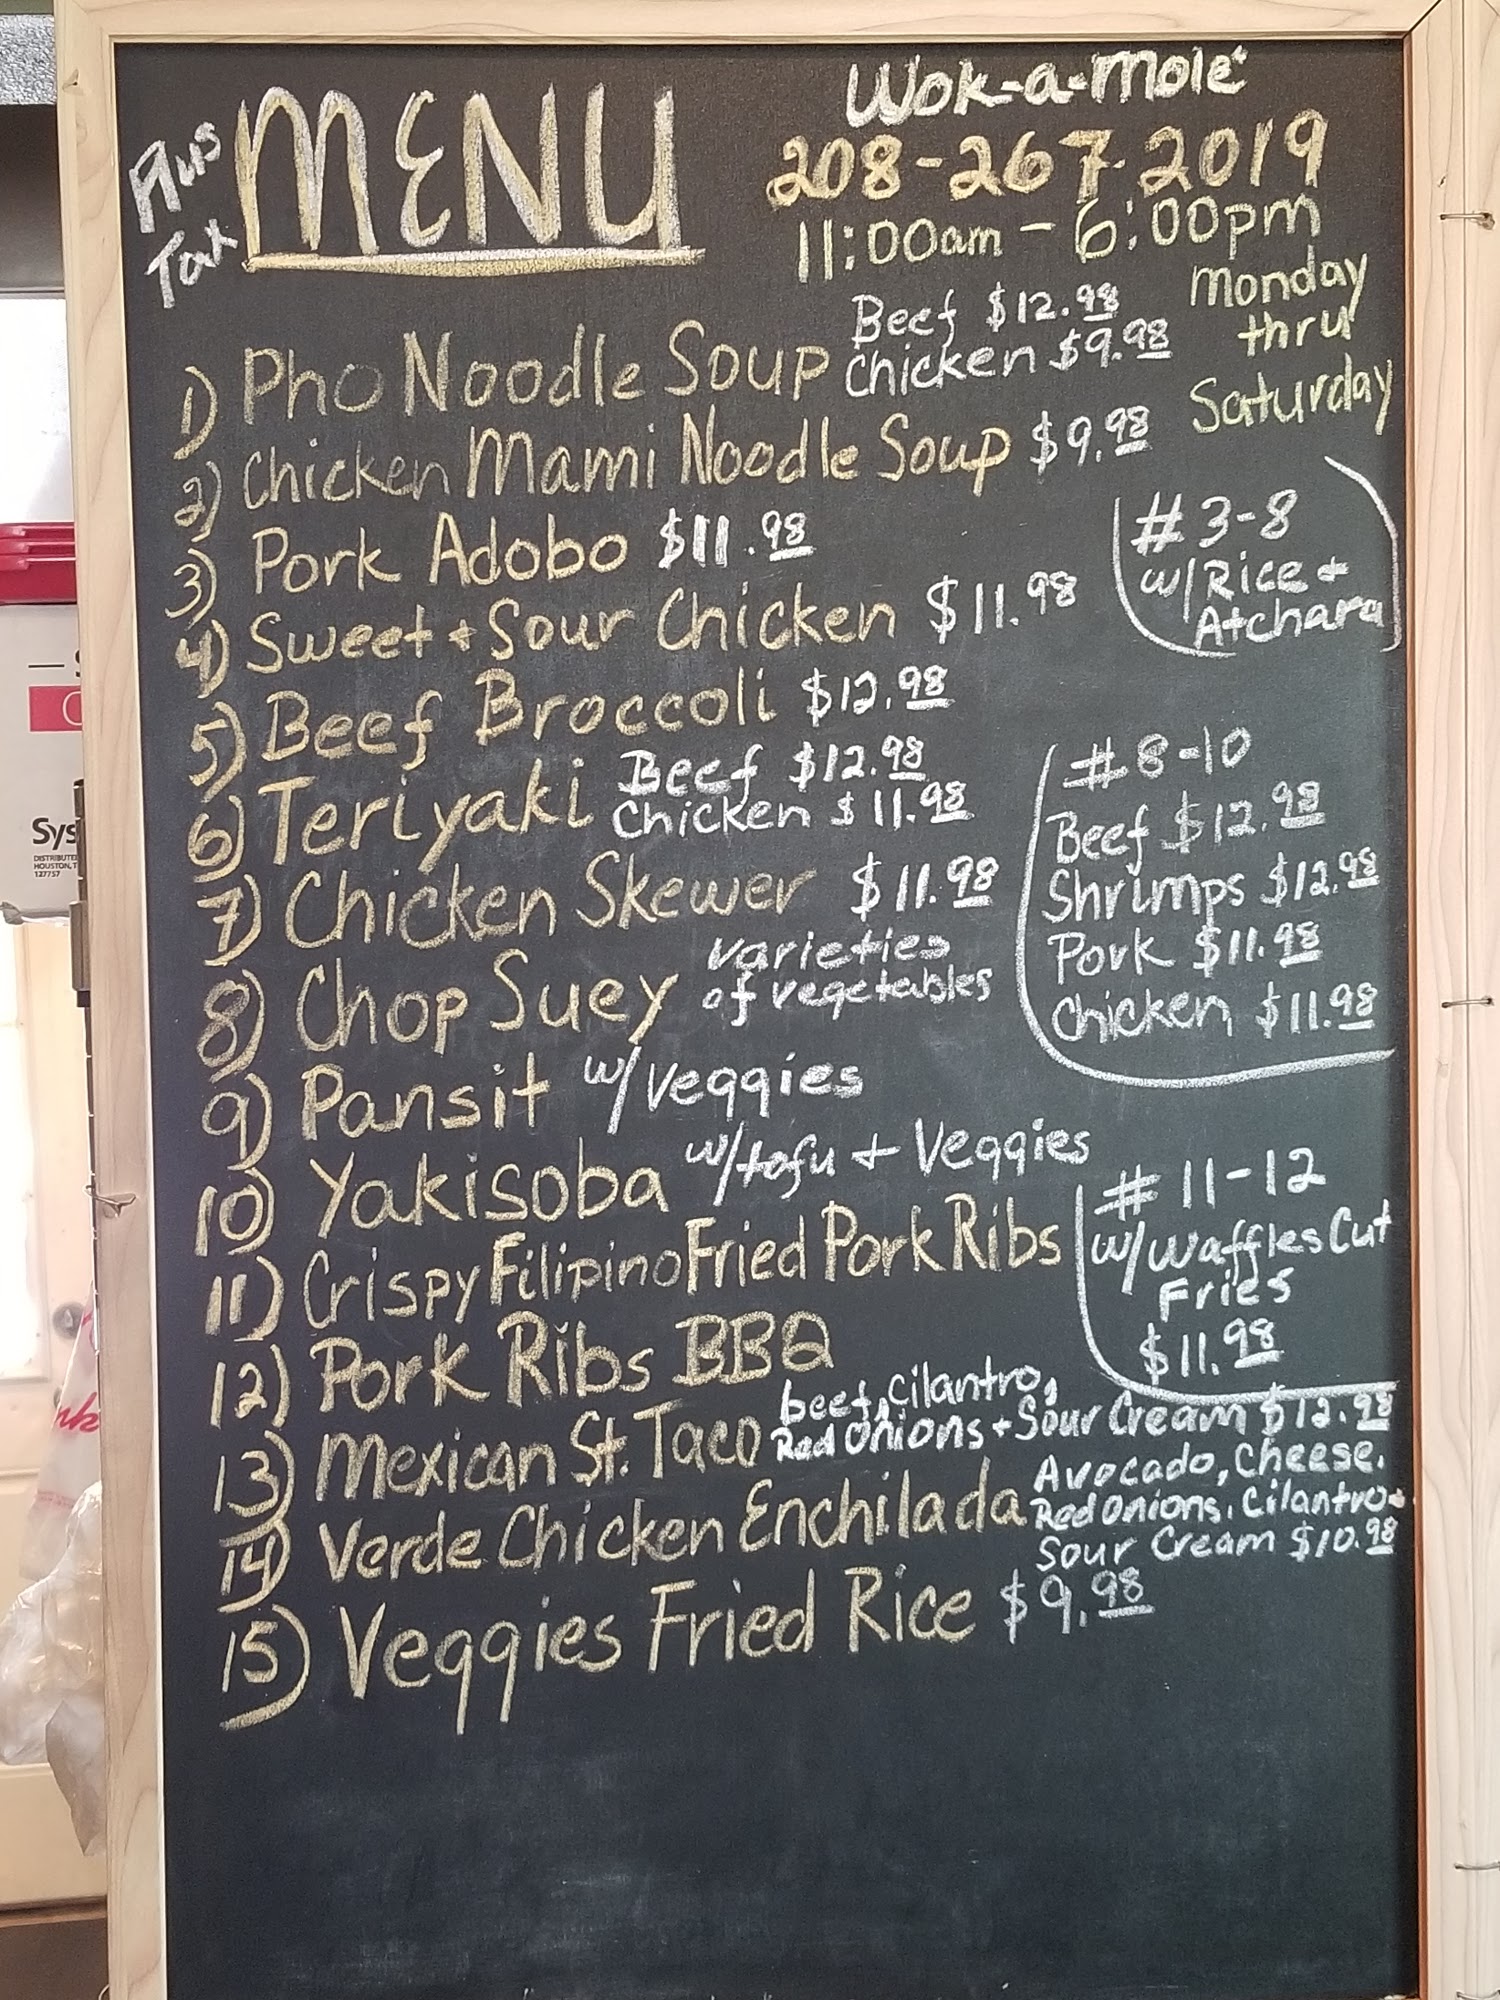 Plus
Tax
MENU
Wok-a-mole
208-267-2019
11:00am - 6:00pm
Monday
thru
Saturday
1) Pho Noodle Soup Beef $12.98
Chicken $9.98
2) Chicken Mami Noodle Soup $9.98
3) Pork Adobo $11.98
4) Sweet + Sour Chicken $11.98
#3-8
w/Rice +
Atchara
5) Beef Broccoli $12.98
6) Teriyaki Beef $12.98
Chicken $11.98
7) Chicken Skewer $11.98
8) Chop Suey varieties
of vegetables
9) Pansit w/veggies
10) Yakisoba w/tofu + Veggies
#8-10
Beef $12.98
Shrimps $12.98
Pork $11.98
Chicken $11.98
11) Crispy Filipino Fried Pork Ribs
12) Pork Ribs BBQ
#11-12
w/Waffles Cut
Fries
$11.98
13) Mexican St. Taco beef, Cilantro,
Red Onions + Sour Cream $12.98
14) Verde Chicken Enchilada Avocado, Cheese,
Red Onions, Cilantro +
Sour Cream $10.98
15) Veggies Fried Rice $9.98
Sys
DISTRIBUTE
HOUSTON, T
127757